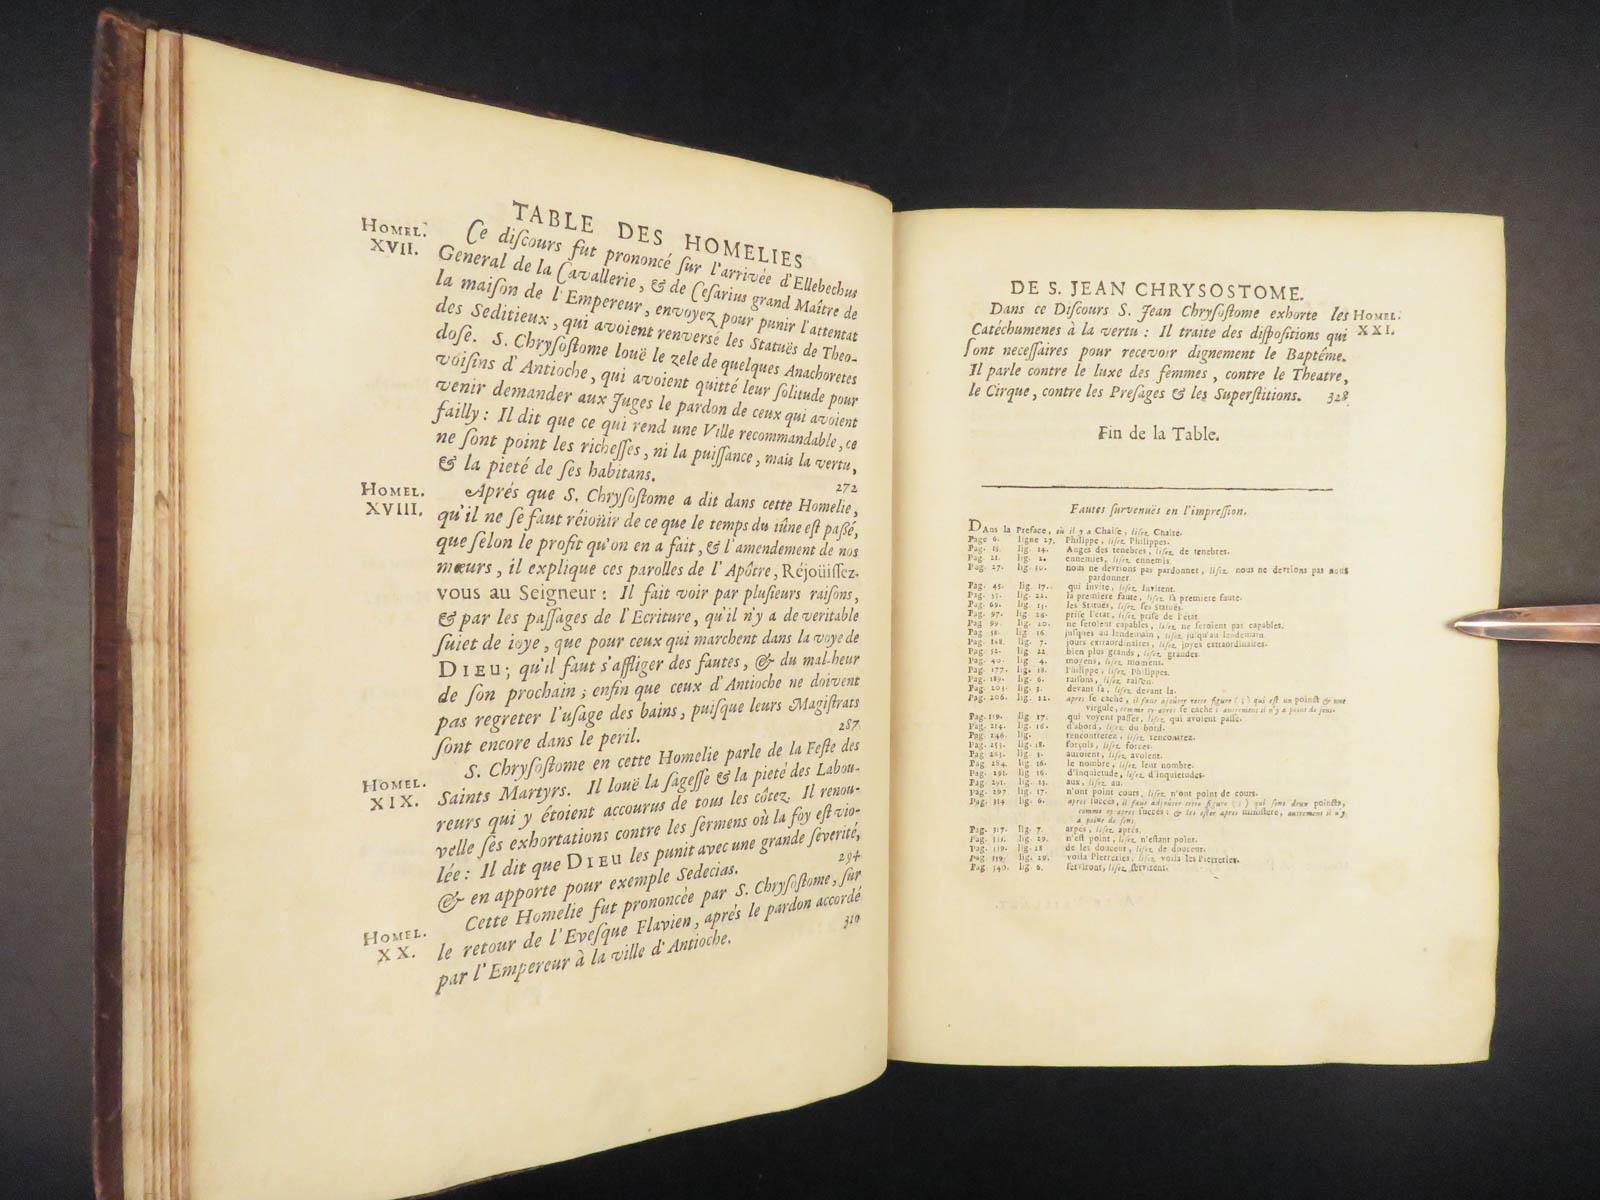 TABLE DES HOMELIES
HOMEL. XVII.
Ce discours fut prononcé sur l'arrivée d'Ellebechus
General de la Cavallerie, & de Cesarius grand Maître de
la maison de l'Empereur, envoyez pour punir l'attentat
des Seditieux, qui avoient renversé les Statuës de Theo-
dose. S. Chrysostome louë le zele de quelques Anachoretes
voisins d'Antioche, qui avoient quitté leur solitude pour
venir demander aux Juges le pardon de ceux qui avoient
failly : Il dit que ce qui rend une Ville recommandable, ce
ne sont point les richesses, ni la puissance, mais la vertu,
& la pieté de ses habitans. 272
HOMEL. XVIII.
Aprés que S. Chrysostome a dit dans cette Homelie,
qu'il ne se faut réioüir de ce que le temps du iûne est passé,
que selon le profit qu'on en a fait, & l'amendement de nos
mœurs, il explique ces parolles de l'Apôtre, Réjoüissez-
vous au Seigneur : Il fait voir par plusieurs raisons,
& par les passages de l'Ecriture, qu'il n'y a de veritable
suiet de ioye, que pour ceux qui marchent dans la voye de
DIEU ; qu'il faut s'affliger des fautes, & du mal-heur
de son prochain ; enfin que ceux d'Antioche ne doivent
pas regreter l'usage des bains, puisque leurs Magistrats
sont encore dans le peril. 287
HOMEL. XIX.
S. Chrysostome en cette Homelie parle de la Feste des
Saints Martyrs. Il louë la sagesse & la pieté des Labou-
reurs qui y étoient accourus de tous les côtez. Il renou-
velle ses exhortations contre les sermens où la foy est vio-
lée : Il dit que DIEU les punit avec une grande severité,
& en apporte pour exemple Sedecias. 294
HOMEL. XX.
Cette Homelie fut prononcée par S. Chrysostome, sur
le retour de l'Evesque Flavien, aprés le pardon accordé
par l'Empereur à la ville d'Antioche. 310
DE S. JEAN CHRYSOSTOME.
Dans ce Discours S. Jean Chrysostome exhorte les
HOMEL. XXI.
Catéchumenes à la vertu : Il traite des dispositions qui
sont necessaires pour recevoir dignement le Baptême.
Il parle contre le luxe des femmes, contre le Theatre,
le Cirque, contre les Presages & les Superstitions. 328
Fin de la Table.
Fautes survenuës en l'impression.
DAns la Preface, où il y a Chaise, lisez Chaire.
Page 6. ligne 27. Philippe, lisez Philippes.
Pag. 15. lig. 14. Anges des tenebres, lisez de tenebres.
Pag. 21. lig. 2. ennemies, lisez ennemis.
Pag. 27. lig. 30. nous ne devrions pas pardonner, lisez nous ne devrions pas nous
pardonner.
Pag. 45. lig. 17. qui invite, lisez invitent.
Pag. 55. lig. 22. la premiere faute, lisez sa premiere faute.
Pag. 69. lig. 15. les Statuës, lisez ses Statuës.
Pag. 97. lig. 26. prise l'état, lisez prise de l'état.
Pag. 99. lig. 20. ne seroient capables, lisez ne seroient pas capables.
Pag. 58. lig. 16. jusques au lendemain, lisez jusqu'au lendemain.
Pag. 168. lig. 7. jours extraordinaires, lisez joyes extraordinaires.
Pag. 52. lig. 22. bien plus grands, lisez grandes.
Pag. 40. lig. 4. moyens, lisez momens.
Pag. 177. lig. 18. Philippe, lisez Philippes.
Pag. 189. lig. 6. raisons, lisez raison.
Pag. 203. lig. 3. devant sa, lisez devant la.
Pag. 206. lig. 22. aprés se cache, il faut ajoûter cette figure (;) qui est un point & une
virgule, comme cy-aprés se cache ; autrement il n'y a point de sens.
Pag. 219. lig. 17. qui voyent passer, lisez qui avoient passé.
Pag. 214. lig. 16. d'abord, lisez du bord.
Pag. 246. lig. rencontretez, lisez rencontrez.
Pag. 253. lig. 18. forçois, lisez forces.
Pag. 263. lig. 5. auroient, lisez avoient.
Pag. 284. lig. 16. le nombre, lisez leur nombre.
Pag. 291. lig. 16. d'inquietude, lisez d'inquietudes.
Pag. 291. lig. 15. aux, lisez au.
Pag. 297. lig. 17. n'ont point cours, lisez n'ont point de cours.
Pag. 314. lig. 6. aprés succés, il faut adjoûter cette figure (:) qui sont deux points,
comme cy-aprés succés : & les oster aprés ministere, autrement il n'y
a point de sens.
Pag. 317. lig. 7. arpés, lisez aprés.
Pag. lig. 29. n'est point, lisez n'estant point.
Pag. lig. 28 de les douceur, lisez de douceur.
Pag. lig. 29. voila Pierreries, lisez voila les Pierreries.
Pag. 340. lig. 6. serviront, lisez servirent.